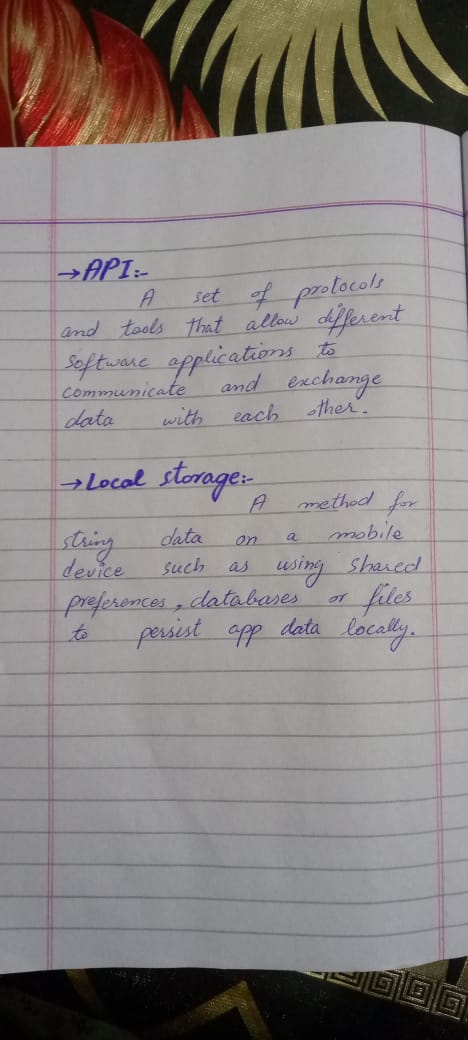 →API:-
A set of protocols
and tools that allow different
software applications to
communicate and exchange
data with each other.
→Local storage:-
A method for
string data on a mobile
device such as using shared
preferences, databases or files
to persist app data locally.